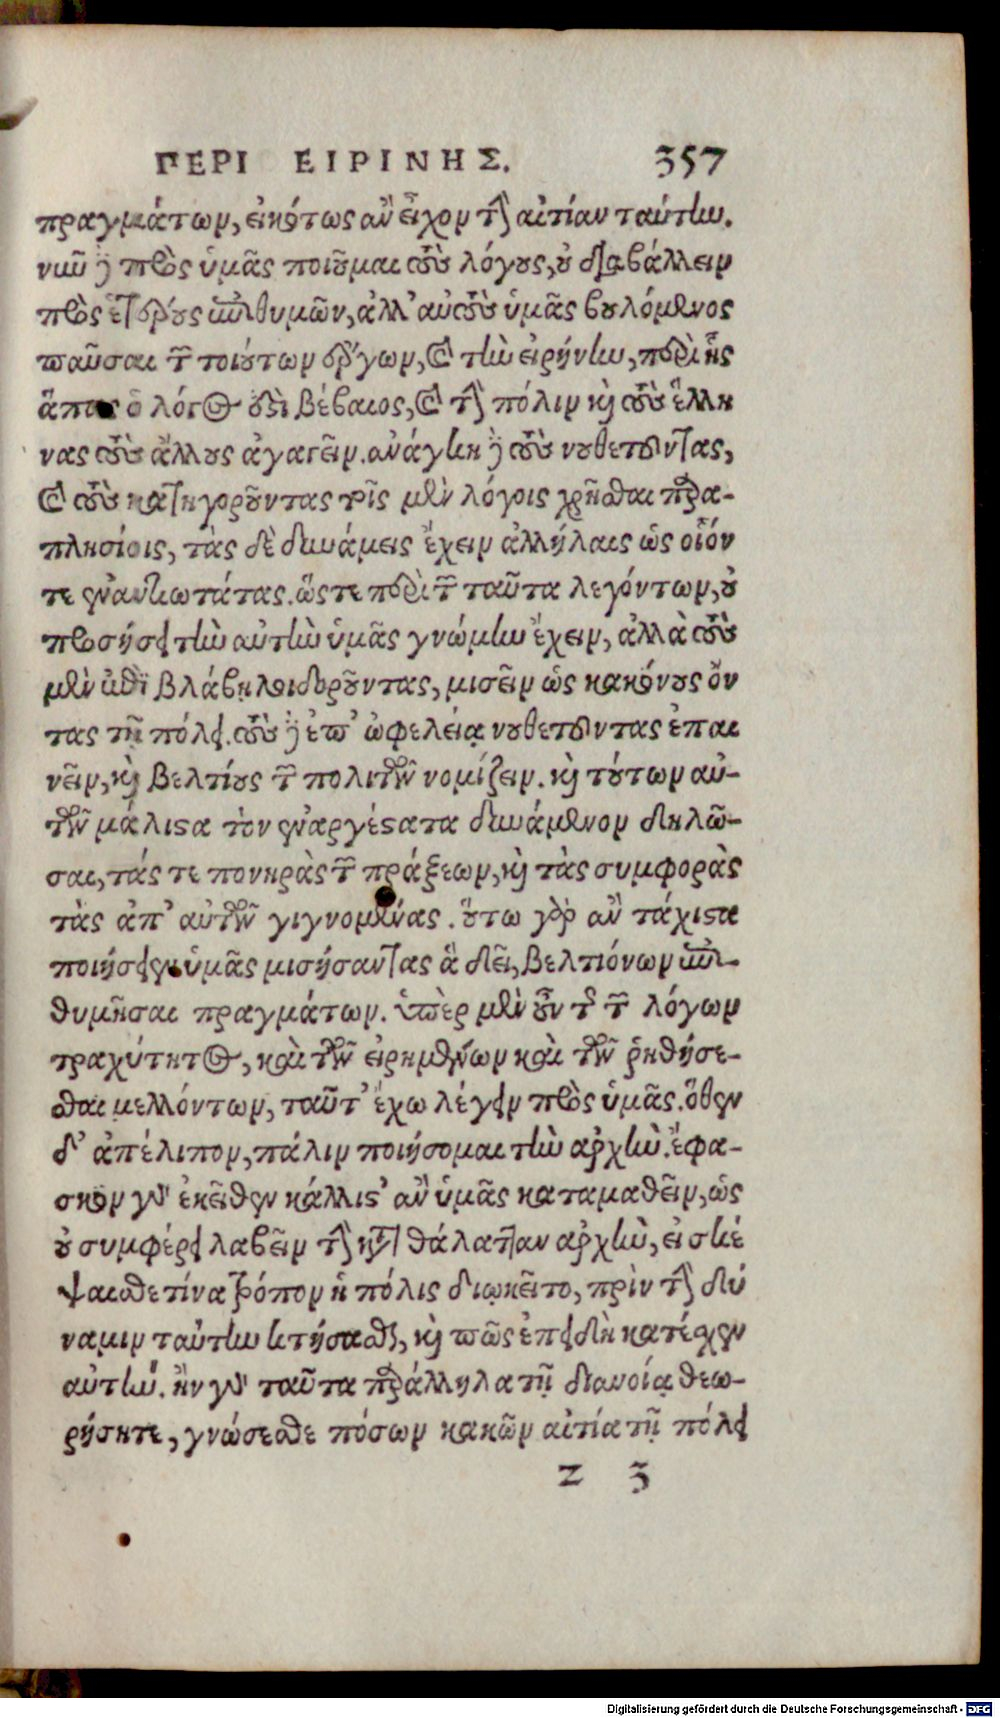 ΠΕΡΙ ΕΙΡΙΝΗΣ. 357
πραγμάτων, εἰκότως ἂν εἶχον τὴν αἰτίαν ταύτην.
νυνὶ δὲ πρὸς ὑμᾶς ποιοῦμαι τοὺς λόγους, οὐ διαβάλλειν
πρὸς ἑτέρους ἐπιθυμῶν, ἀλλ' αὐτοὺς ὑμᾶς βουλόμενος
παῦσαι τῶν τοιούτων ἔργων, καὶ τὴν εἰρήνην, περὶ ἧς
ἅπας ὁ λόγος ἐστὶ βέβαιος, καὶ τὴν πόλιν καὶ τοὺς ἕλλη
νας τοὺς ἄλλους ἀγαγεῖν. ἀνάγκη δὲ τοὺς νουθετοῦντας,
καὶ τοὺς κατηγοροῦντας τοῖς μὲν λόγοις χρῆσθαι παρα-
πλησίοις, τὰς δὲ δυνάμεις ἔχειν ἀλλήλαις ὡς οἷόν
τε ἐναντιωτάτας. ὥστε περὶ τῶν ταῦτα λεγόντων, οὐ
προσήσει τὴν αὐτὴν ὑμᾶς γνώμην ἔχειν, ἀλλὰ τοὺς
μὲν ἐπὶ βλάβῃ λοιδοροῦντας, μισεῖν ὡς κακόνους ὄν
τας τῇ πόλει. τοὺς δὲ ἐπ' ὠφελείᾳ νουθετοῦντας ἐπαι
νεῖν, καὶ βελτίους τῶν πολιτῶν νομίζειν. καὶ τούτων αὐ-
τῶν μάλιστα τὸν ἐναργέστατα δυνάμενον δηλῶ-
σαι, τάς τε πονηρὰς τῶν πράξεων, καὶ τὰς συμφορὰς
τὰς ἀπ' αὐτῶν γιγνομένας. οὕτω γὰρ ἂν τάχιστα
ποιήσειεν ὑμᾶς μισήσαντας ἃ δεῖ, βελτιόνων ἐπι-
θυμῆσαι πραγμάτων. ὑπὲρ μὲν οὖν τῆς τῶν λόγων
τραχύτητος, καὶ τῶν εἰρημένων καὶ τῶν ῥηθήσε-
σθαι μελλόντων, ταῦτ' ἔχω λέγειν πρὸς ὑμᾶς. ὅθεν
δ' ἀπέλιπον, πάλιν ποιήσομαι τὴν ἀρχήν. ἔφα-
σκον γὰρ ἐκεῖθεν κάλλιστ' ἂν ὑμᾶς καταμαθεῖν, ὡς
οὐ συμφέρει λαβεῖν τὴν κατὰ θάλατταν ἀρχὴν, εἰ σκέ
ψαισθε τίνα τρόπον ἡ πόλις διῳκεῖτο, πρὶν τὴν δύ
ναμιν ταύτην κτήσασθαι, καὶ πῶς ἐπειδὴ κατέσχεν
αὐτήν. ἢν γὰρ ταῦτα παράλληλα τῇ διανοίᾳ θεω-
ρήσητε, γνώσεσθε πόσων κακῶν αἰτία τῇ πόλει
z 3
Digitalisierung gefördert durch die Deutsche Forschungsgemeinschaft - DFG